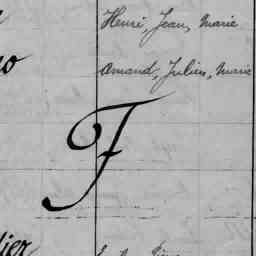 Henri, Jean, Marie
Amand, Julien, Marie
F